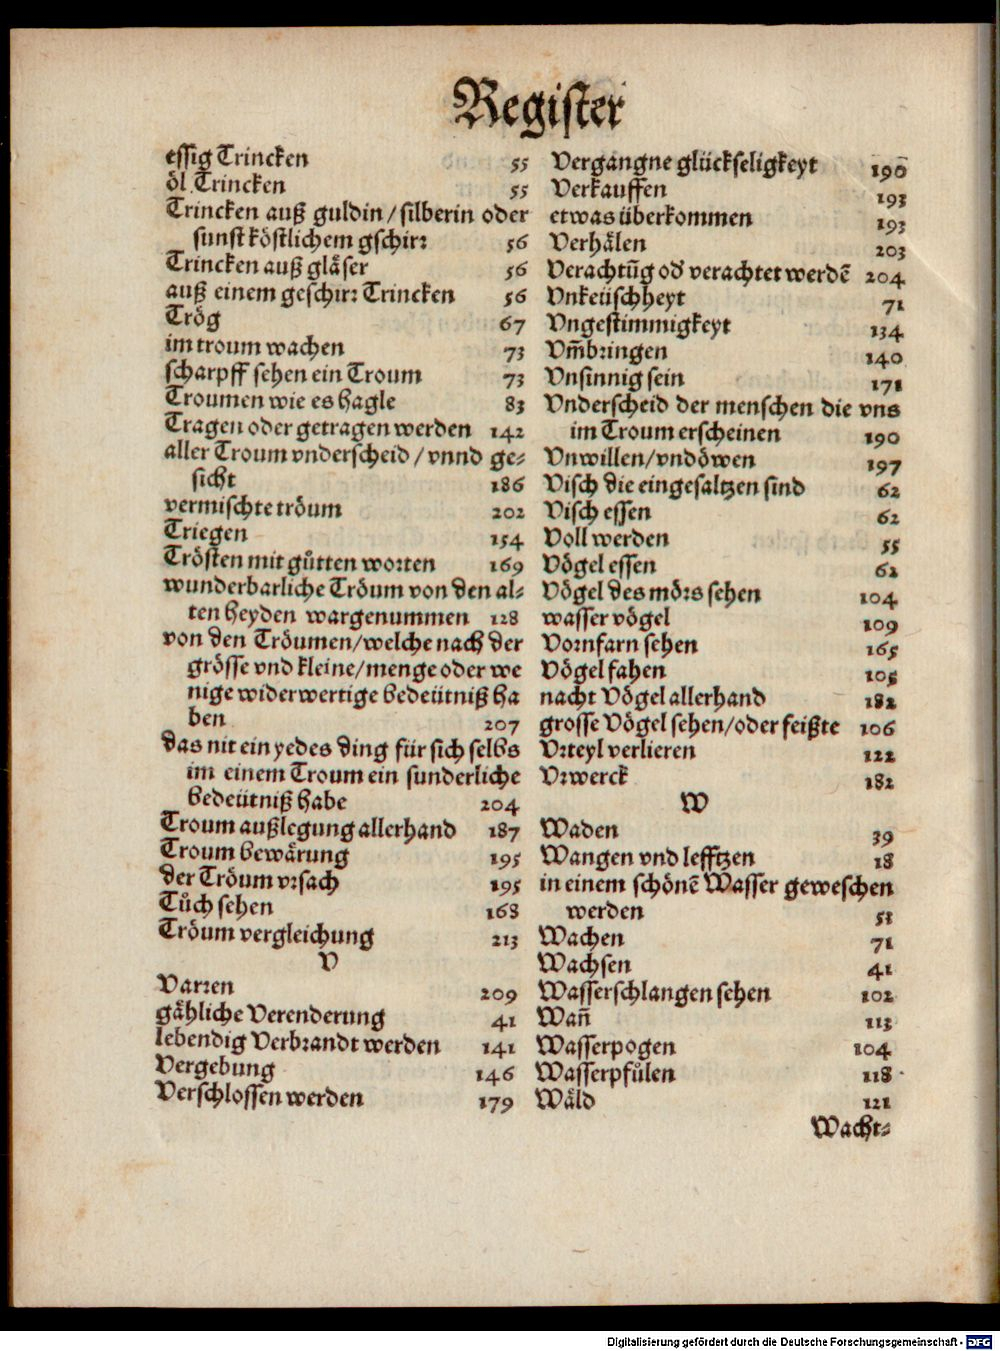 Register
essig Trincken 55
öl Trincken 55
Trincken auß guldin / silberin oder
sunst köstlichem gschirr 56
Trincken auß gläser 56
auß einem geschirr Trincken 56
Trög 67
im troum wachen 73
scharpff sehen ein Troum 73
Troumen wie es hagle 83
Tragen oder getragen werden 142
aller Troum vnderscheid / vnnd ge⸗
sicht 186
vermischte tröum 202
Triegen 154
Trösten mit gůtten worten 169
wunderbarliche Tröum von den al⸗
ten heyden wargenummen 128
von den Tröumen/welche nach der
grösse vnd kleine/menge oder we
nige widerwertige bedeütniß ha
ben 207
das nit ein yedes ding für sich selbs
im einem Troum ein sunderliche
bedeütniß habe 204
Troum außlegung allerhand 187
Troum bewärung 195
der Tröum vrsach 195
Tůch sehen 168
Tröum vergleichung 213
V
Varren 209
gähliche Verenderung 41
lebendig Verbrandt werden 141
Vergebung 146
Verschlossen werden 179
Vergangne glückseligkeyt 190
Verkauffen 193
etwas überkommen 193
Verhälen 203
Verachtũg od' verachtet werdẽ 204
Vnkeüschheyt 71
Vngestimmigkeyt 134
Vm̃bringen 140
Vnsinnig sein 171
Vnderscheid der menschen die vns
im Troum erscheinen 190
Vnwillen/vndöwen 197
Visch die eingesaltzen sind 62
Visch essen 62
Voll werden 55
Vögel essen 62
Vögel des mörs sehen 104
wasser vögel 109
Vornfarn sehen 165
Vögel fahen 105
nacht Vögel allerhand 182
grosse Vögel sehen/oder feißte 106
Vrteyl verlieren 122
Vrwerck 182
W
Waden 39
Wangen vnd lefftzen 18
in einem schönẽ Wasser geweschen
werden 51
Wachen 71
Wachsen 41
Wasserschlangen sehen 102
Wañ 113
Wasserpogen 104
Wasserpfůlen 118
Wäld 121
Wacht⸗
Digitalisierung gefördert durch die Deutsche Forschungsgemeinschaft - DFG